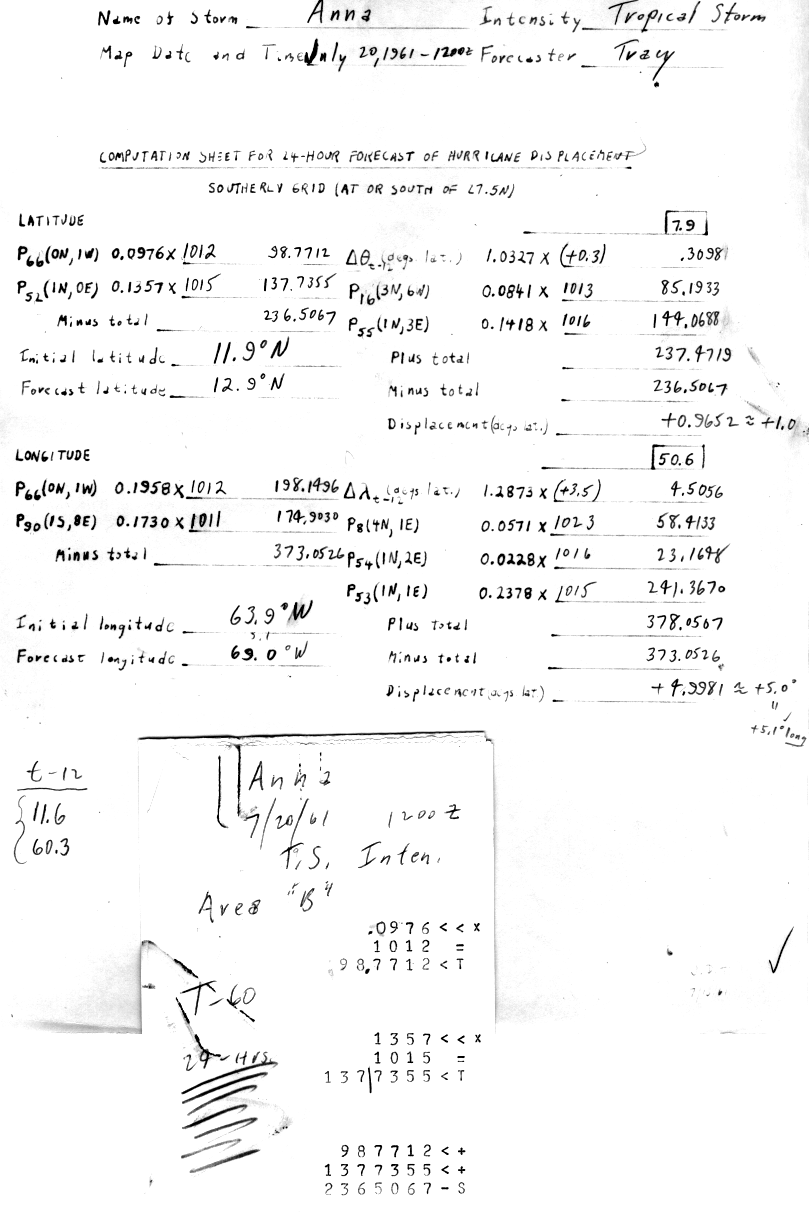 Name of Storm Anna Intensity Tropical Storm
Map Date and Time July 20, 1961 - 1200Z Forecaster Tracy
COMPUTATION SHEET FOR 24-HOUR FORECAST OF HURRICANE DISPLACEMENT
SOUTHERLY GRID (AT OR SOUTH OF 27.5N)
LATITUDE 7.9
P66(0N, 1W) 0.0976 X 1012 98.7712 Δθt-12 (degs lat.) 1.0327 X (+0.3) .3098
P52(1N, 0E) 0.1357 X 1015 137.7355 P16(3N, 6W) 0.0841 X 1013 85.1933
Minus total 236.5067 P55(1N, 3E) 0.1418 X 1016 144.0688
Initial latitude 11.9°N Plus total 237.4719
Forecast latitude 12.9°N Minus total 236.5067
Displacement (degs lat.) +0.9652 ≈ +1.0
LONGITUDE 50.6
P66(0N, 1W) 0.1958 X 1012 198.1496 Δλt-12 (degs lat.) 1.2873 X (+3.5) 4.5056
P90(1S, 8E) 0.1730 X 1011 174.9030 P8(4N, 1E) 0.0571 X 1023 58.4133
Minus total 373.0526 P54(1N, 2E) 0.0228 X 1016 23.1648
P53(1N, 1E) 0.2378 X 1015 241.3670
Initial longitude 63.9°W Plus total 378.0507
5.1
Forecast longitude 69.0°W Minus total 373.0526
Displacement (degs lat) +4.9981 ≈ +5.0°
"
+5.1° long
t-12
11.6
60.3
Anna
7/20/61 1200Z
T.S. Inten.
Area "B"
.0976 < < x
1012 =
98.7712 < T
T-60
24-Hrs.
1357 < < x
1015 =
137|7355 < T
987712 < +
1377355 < +
2365067 - S